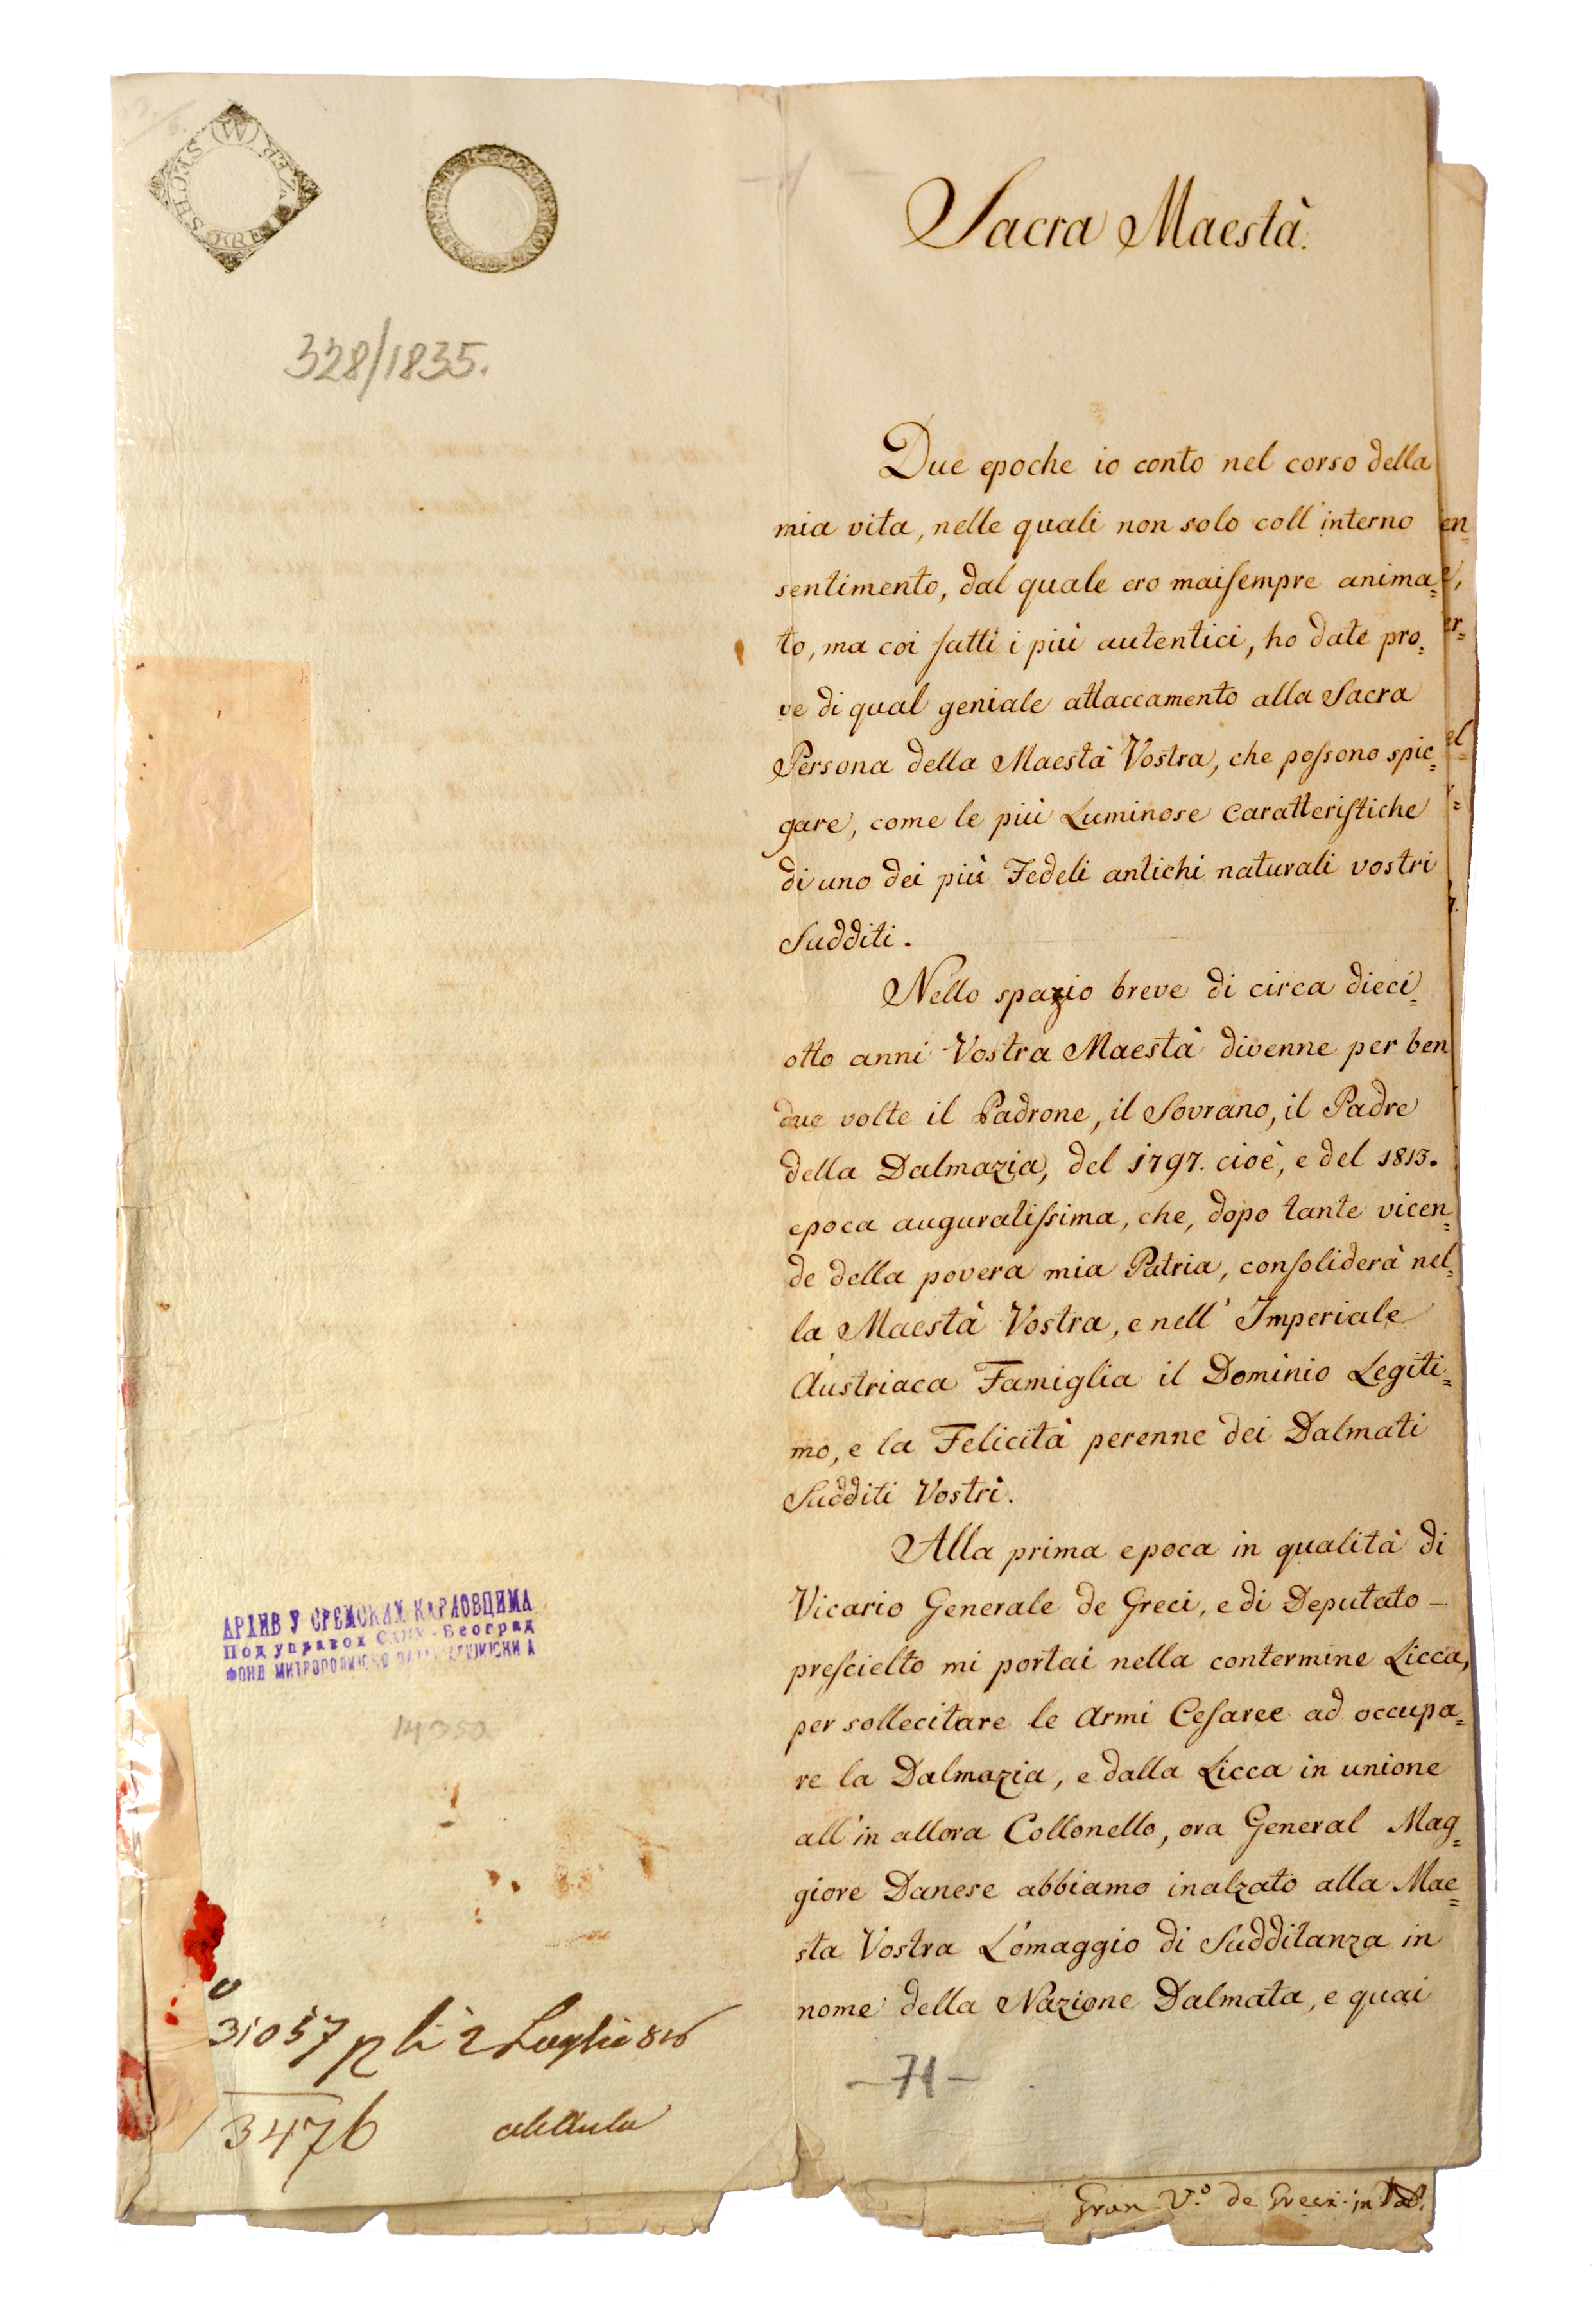 328/1835.
АРХИВ У СРЕМСКИМ КАРЛОВЦИМА
Под управом САНУ - Београд
ФОНД МИТРОПОЛИЈСКО
14350
31057
2 Luglio 816
3476
Sacra Maestà.
Due epoche io conto nel corso della
mia vita, nelle quali non solo coll'interno
sentimento, dal quale ero maiſempre anima=
to, ma coi fatti i più autentici, ho date pro=
ve di qual geniale attaccamento alla Sacra
Persona della Maestà Vostra, che poſsono spie=
gare, come le più Luminose Caratteriſtiche
di uno dei più Fedeli antichi naturali vostri
Sudditi.
Nello spazio breve di circa dieci=
otto anni Vostra Maestà divenne per ben
due volte il Padrone, il Sovrano, il Padre
della Dalmazia, del 1797. cioè, e del 1813.
epoca auguratiſsima, che, dopo tante vicen=
de della povera mia Patria, conſoliderà nel=
la Maestà Vostra, e nell' Imperiale
Austriaca Famiglia il Dominio Legiti=
mo, e la Felicità perenne dei Dalmati
Sudditi Vostri.
Alla prima epoca in qualità di
Vicario Generale de Greci, e di Deputato –
preſcielto mi portai nella contermine Licca,
per sollecitare le Armi Ceſaree ad occupa=
re la Dalmazia, e dalla Licca in unione
all'in allora Collonello, ora General Mag=
giore Danese abbiamo inalzato alla Mae=
sta Vostra L'omaggio di Sudditanza in
nome della Nazione Dalmata, e quai
–71–
en=
er=
el
Gran V.º de Greci in Dal.